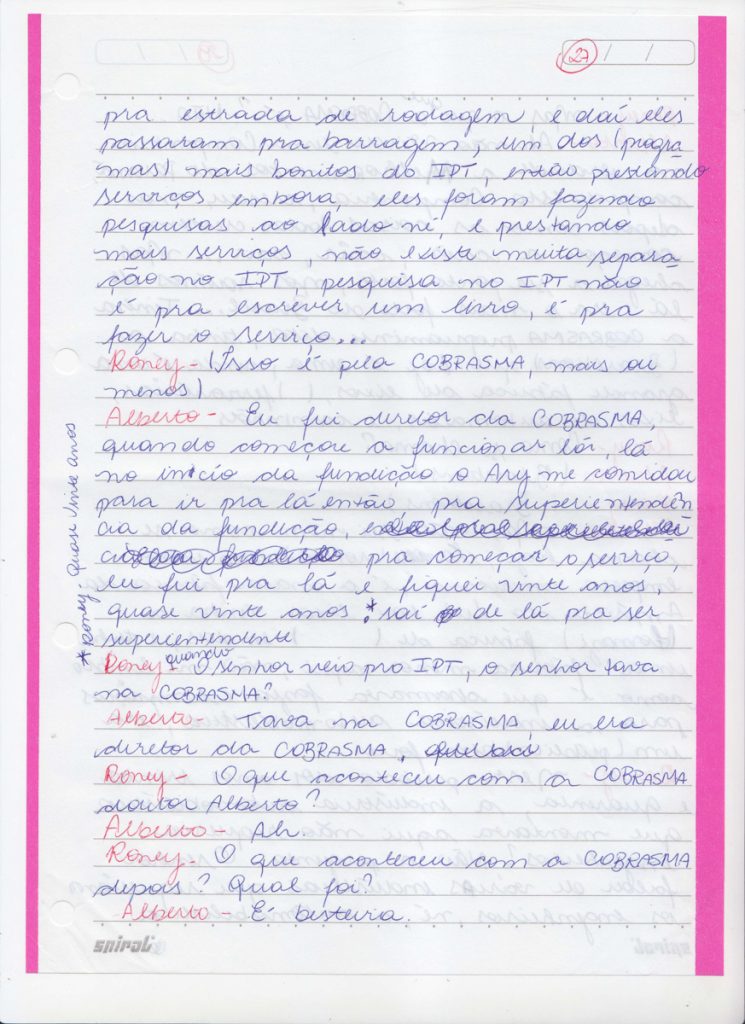 27
pra estrada de rodagem, e daí eles
passaram pra barragem, um dos (progra-
mas) mais bonitos do IPT, então prestando
serviços embora, eles foram fazendo
pesquisas ao lado né, e prestando
mais serviços, não existe muita separa-
ção no IPT, pesquisa no IPT não
é pra escrever um livro, é pra
fazer o serviço...
Roney - (Isso é pela COBRASMA, mais ou
menos)
Alberto - Eu fui diretor da COBRASMA,
quando começou a funcionar lá, lá
no início da fundição o Ary me convidou
para ir pra lá então pra superientendên-
cia da fundição,
pra começar o serviço,
eu fui pra lá e fiquei vinte anos,
quase vinte anos.* saí de lá pra ser
superientendente
* Roney - Quase vinte anos
Roney - quando O senhor veio pro IPT, o senhor tava
na COBRASMA?
Alberto - Tava na COBRASMA, eu era
diretor da COBRASMA,
Roney - O que aconteceu com a COBRASMA
doutor Alberto?
Alberto - Ah.
Roney - O que aconteceu com a COBRASMA
depois? Qual foi?
Alberto - É besteira.
spiral